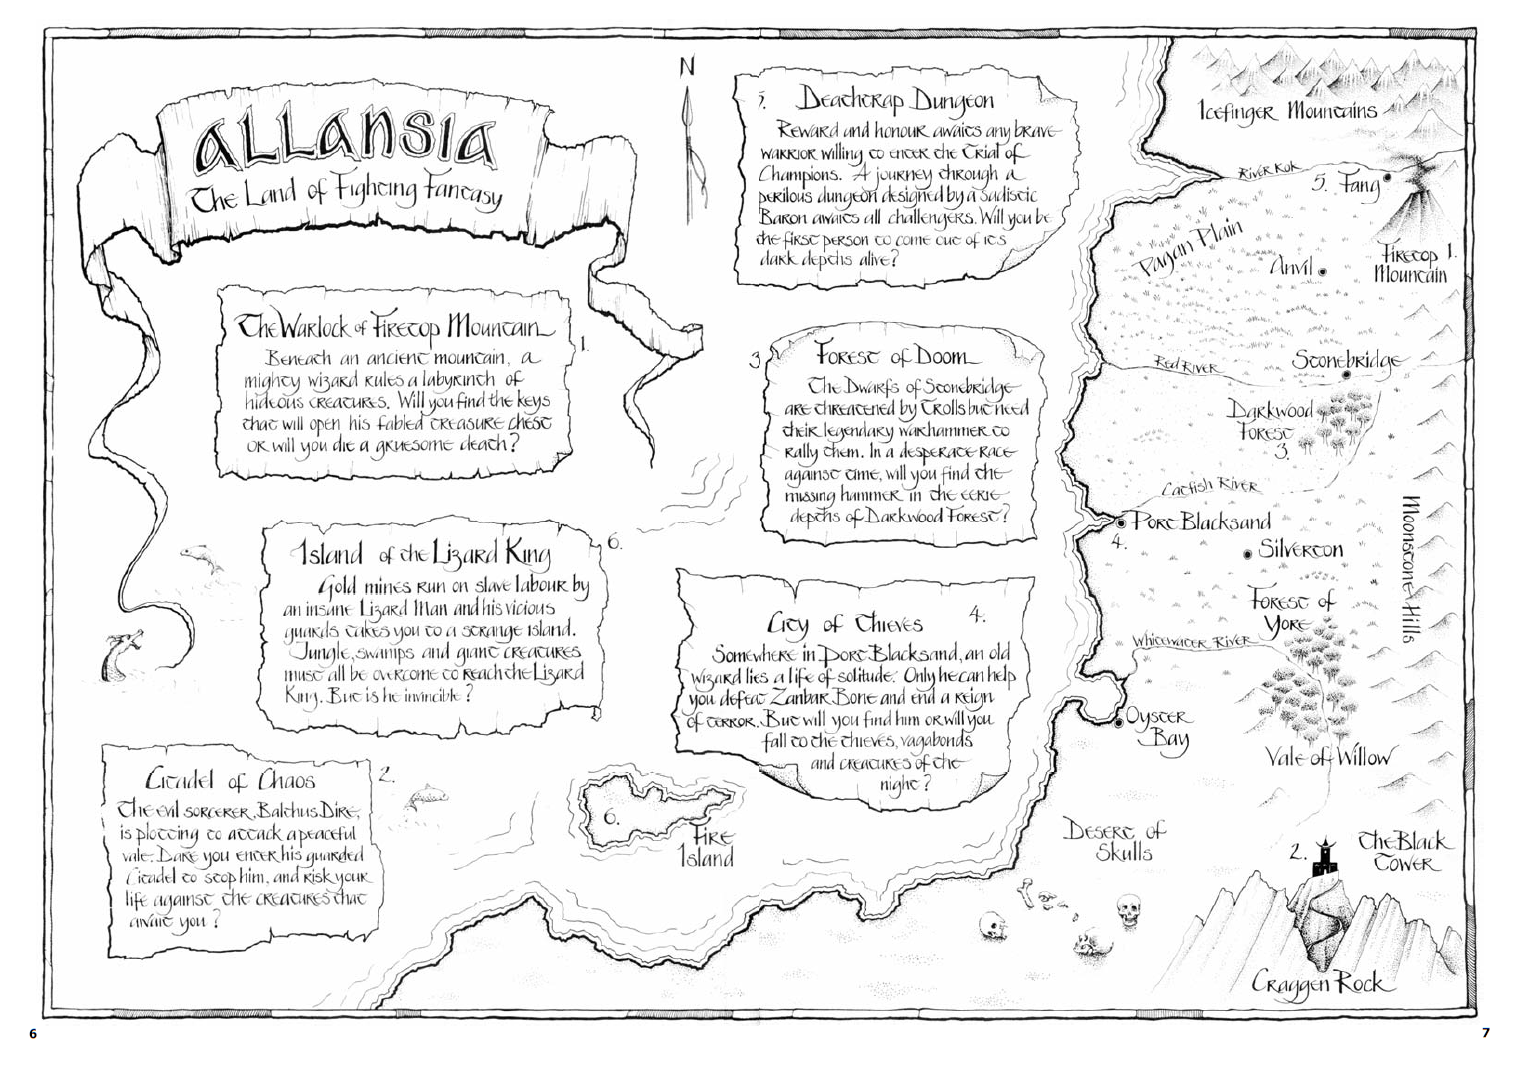 ALLANSIA
The Land of Fighting Fantasy
N
1.
The Warlock of Firetop Mountain
Beneath an ancient mountain, a
mighty wizard rules a labyrinth of
hideous creatures. Will you find the keys
that will open his fabled treasure chest
or will you die a gruesome death?
6.
Island of the Lizard King
Gold mines run on slave labour by
an insane Lizard Man and his vicious
guards takes you to a strange island.
Jungle, swamps and giant creatures
must all be overcome to reach the Lizard
King. But is he invincible?
2.
Citadel of Chaos
The evil sorcerer, Balthus Dire,
is plotting to attack a peaceful
vale. Dare you enter his guarded
Citadel to stop him, and risk your
life against the creatures that
await you?
5. Deathtrap Dungeon
Reward and honour awaits any brave
warrior willing to enter the Trial of
Champions. A journey through a
perilous dungeon designed by a sadistic
Baron awaits all challengers. Will you be
the first person to come out of its
dark depths alive?
3
Forest of Doom
The Dwarfs of Stonebridge
are threatened by Trolls but need
their legendary warhammer to
rally them. In a desperate race
against time, will you find the
missing hammer in the eerie
depths of Darkwood Forest?
4.
City of Thieves
Somewhere in Port Blacksand, an old
wizard lies a life of solitude. Only he can help
you defeat Zanbar Bone and end a reign
of terror. But will you find him or will you
fall to the thieves, vagabonds
and creatures of the
night?
6.
Fire
Island
Icefinger Mountains
River Kok
5. Fang
Pagan Plain
Anvil
Firetop 1.
Mountain
Red River
Stonebridge
Darkwood
Forest
3.
Catfish River
Port Blacksand
4.
Silverton
Moonstone Hills
Forest of
Yore
Whitewater River
Oyster
Bay
Vale of Willow
Desert of
Skulls
2.
The Black
Tower
Craggen Rock
6
7